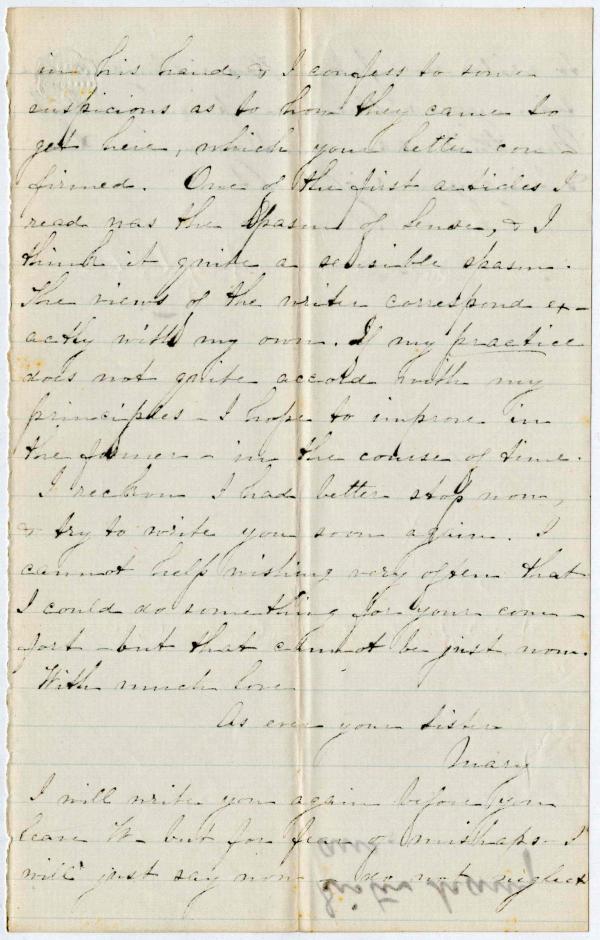 in his hand, & I confess to some
suspicions as to how they came to
get here, which your letter con-
firmed. One of the first articles I
read was the Spasm of Sense, & I
think it quite a sensible spasm.
The views of the writer correspond ex-
actly with my own. If my practice
does not quite accord with my
principles - I hope to improve in
the former - in the course of time.
I reckon I had better stop now,
& try to write you soon again. I
cannot help wishing very often that
I could do something for your com-
fort - but that cannot be just now.
With much love
As ever your sister
Mary
I will write you again before you
leave W- but for fear of mishaps I
will just say now - do not neglect